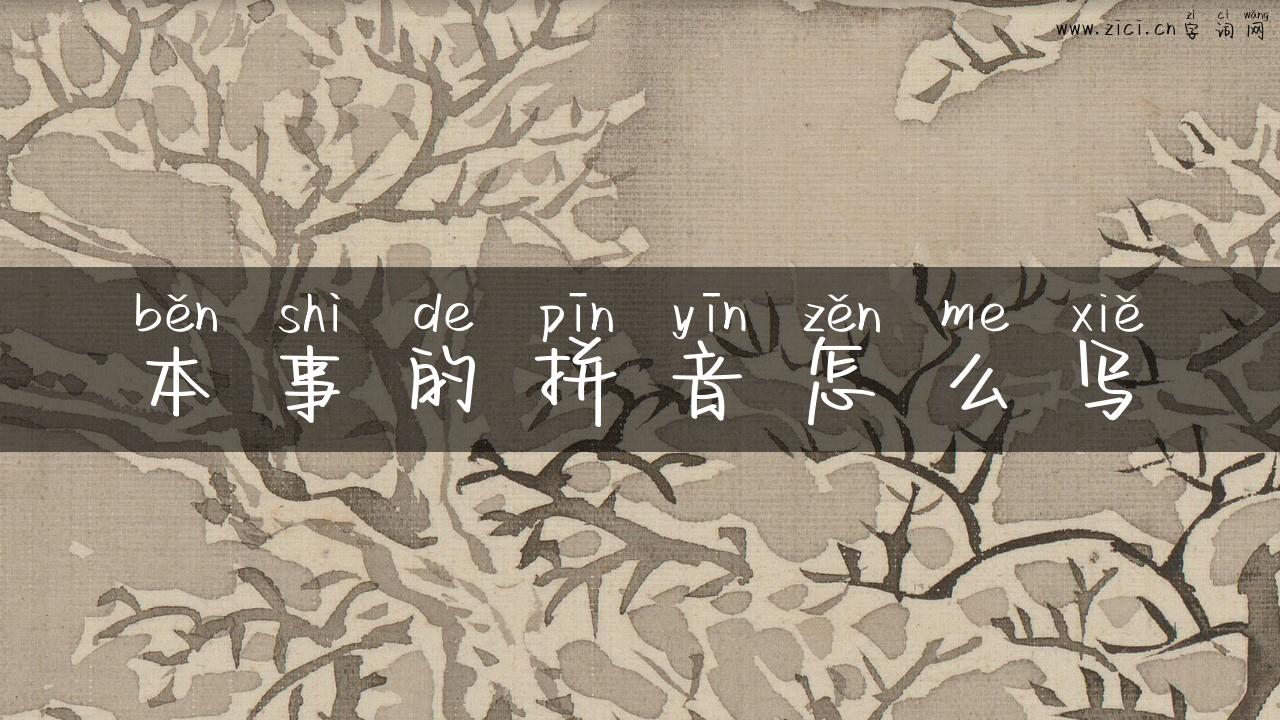 zì cí wǎng
www.zici.cn 字 词 网
běn shì de pīn yīn zěn me xiě
本 事 的 拼 音 怎 么 写